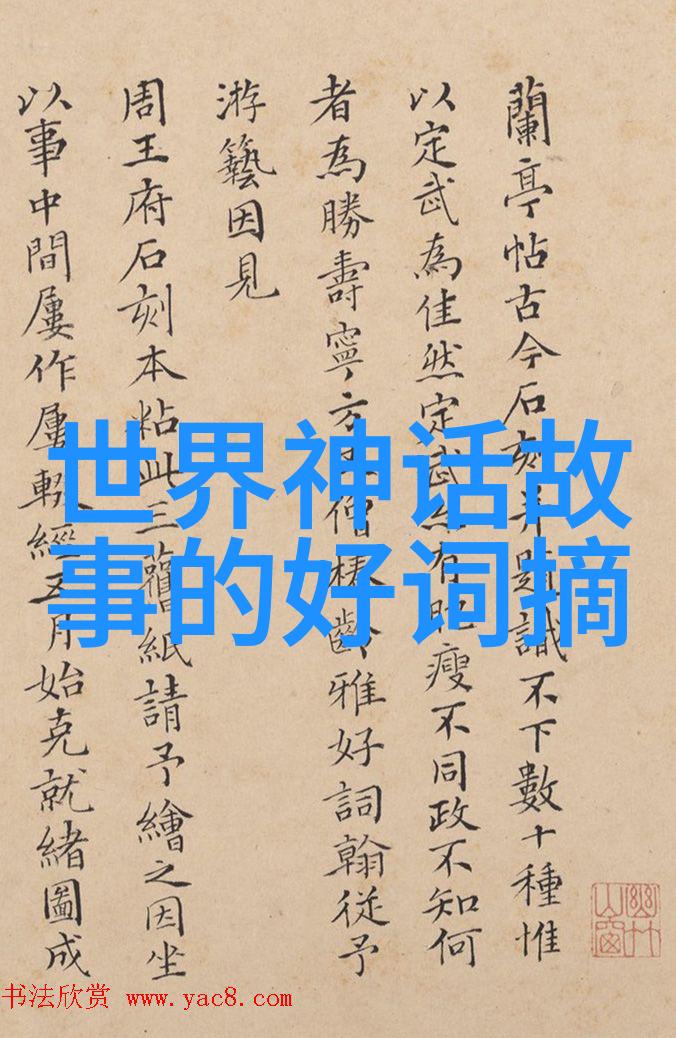 蘭亭帖古今石刻并題識不下數十種惟
以定武為佳然定武亦有肥瘦不同政不知何
者為勝壽寧方丈僧椿齡雅好詞翰從予
游藝因見
周王府石刻本粘此三舊紙請予繪之因坐
以事中間屢作屢輟經五月始克就緒圖成
世界神话故
事的好词摘
书法欣赏 www.yac8.com